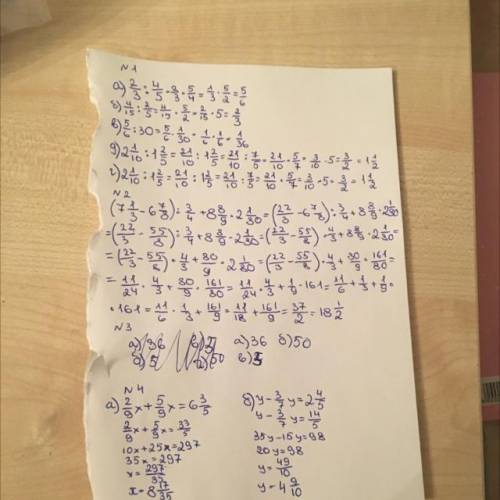 №1
а) 2/3 : 4/5 = 2/3 · 5/4 = 1/3 · 5/2 = 5/6
б) 4/15 : 2/5 = 4/15 · 5/2 = 2/15 · 5 = 2/3
в) 5/6 : 30 = 5/6 · 1/30 = 1/6 · 1/6 = 1/36
д) 2 1/10 : 1 2/5 = 21/10 : 1 2/5 = 21/10 : 7/5 = 21/10 · 5/7 = 3/10 · 5 = 3/2 = 1 1/2
г) 2 1/10 : 1 2/5 = 21/10 : 1 2/5 = 21/10 : 7/5 = 21/10 · 5/7 = 3/10 · 5 = 3/2 = 1 1/2
№2
(7 1/3 - 6 7/8) : 3/4 + 8 8/9 · 2 1/80 = (22/3 - 6 7/8) : 3/4 + 8 8/9 · 2 1/80
= (22/3 - 55/8) : 3/4 + 8 8/9 · 2 1/80 = (22/3 - 55/8) · 4/3 + 8 8/9 · 2 1/80 =
= (22/3 - 55/8) · 4/3 + 80/9 · 2 1/80 = (22/3 - 55/8) · 4/3 + 80/9 · 161/80 =
= 11/24 · 4/3 + 80/9 · 161/80 = 11/24 · 4/3 + 1/9 · 161 = 11/6 · 1/3 + 1/9 ·
· 161 = 11/6 · 1/3 + 161/9 = 11/18 + 161/9 = 37/2 = 18 1/2
№3
а) 36 б) 50
в) 5
№4
а) 2/9 x + 5/9 x = 6 3/5
2/9 x + 5/9 x = 33/5
10x + 25x = 297
35x = 297
x = 297/35
x = 8 17/35
б) y - 3/7 y = 2 4/5
y - 3/7 y = 14/5
35y - 15y = 98
20y = 98
y = 49/10
y = 4 9/10